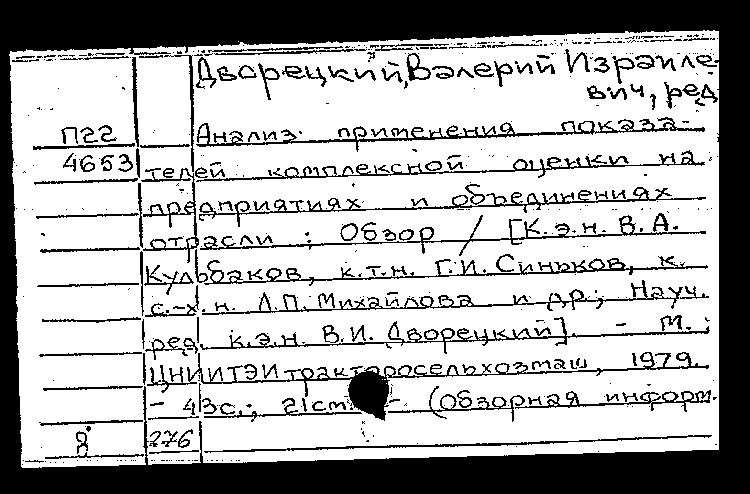 Дворецкий, Валерий Израиле-
вич, ред
П22 Анализ применения показа-
4653 телей комплексной оценки на
предприятиях и объединениях
отрасли : Обзор / [К.э.н. В.А.
Кульбаков, к.т.н. Г.И. Синьков, к.
с.-х.н. Л.П. Михайлова и др; Науч.
ред. к.э.н. В.И. Дворецкий]. - М.:
ЦНИИТЭИтракторосельхозмаш, 1979.
- 43с.; 21см - (Обзорная информ.
8 276